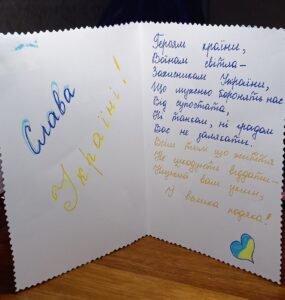 Слава
Україні!
Героям країни,
Воїнам світла—
Захисникам України,
Що мужньо боронять нас
Від супостата,
Ні танком, ні градом
Вас не залякати.
Всім тим, що життя
Не шкодують віддати—
вам
У велика подяка!